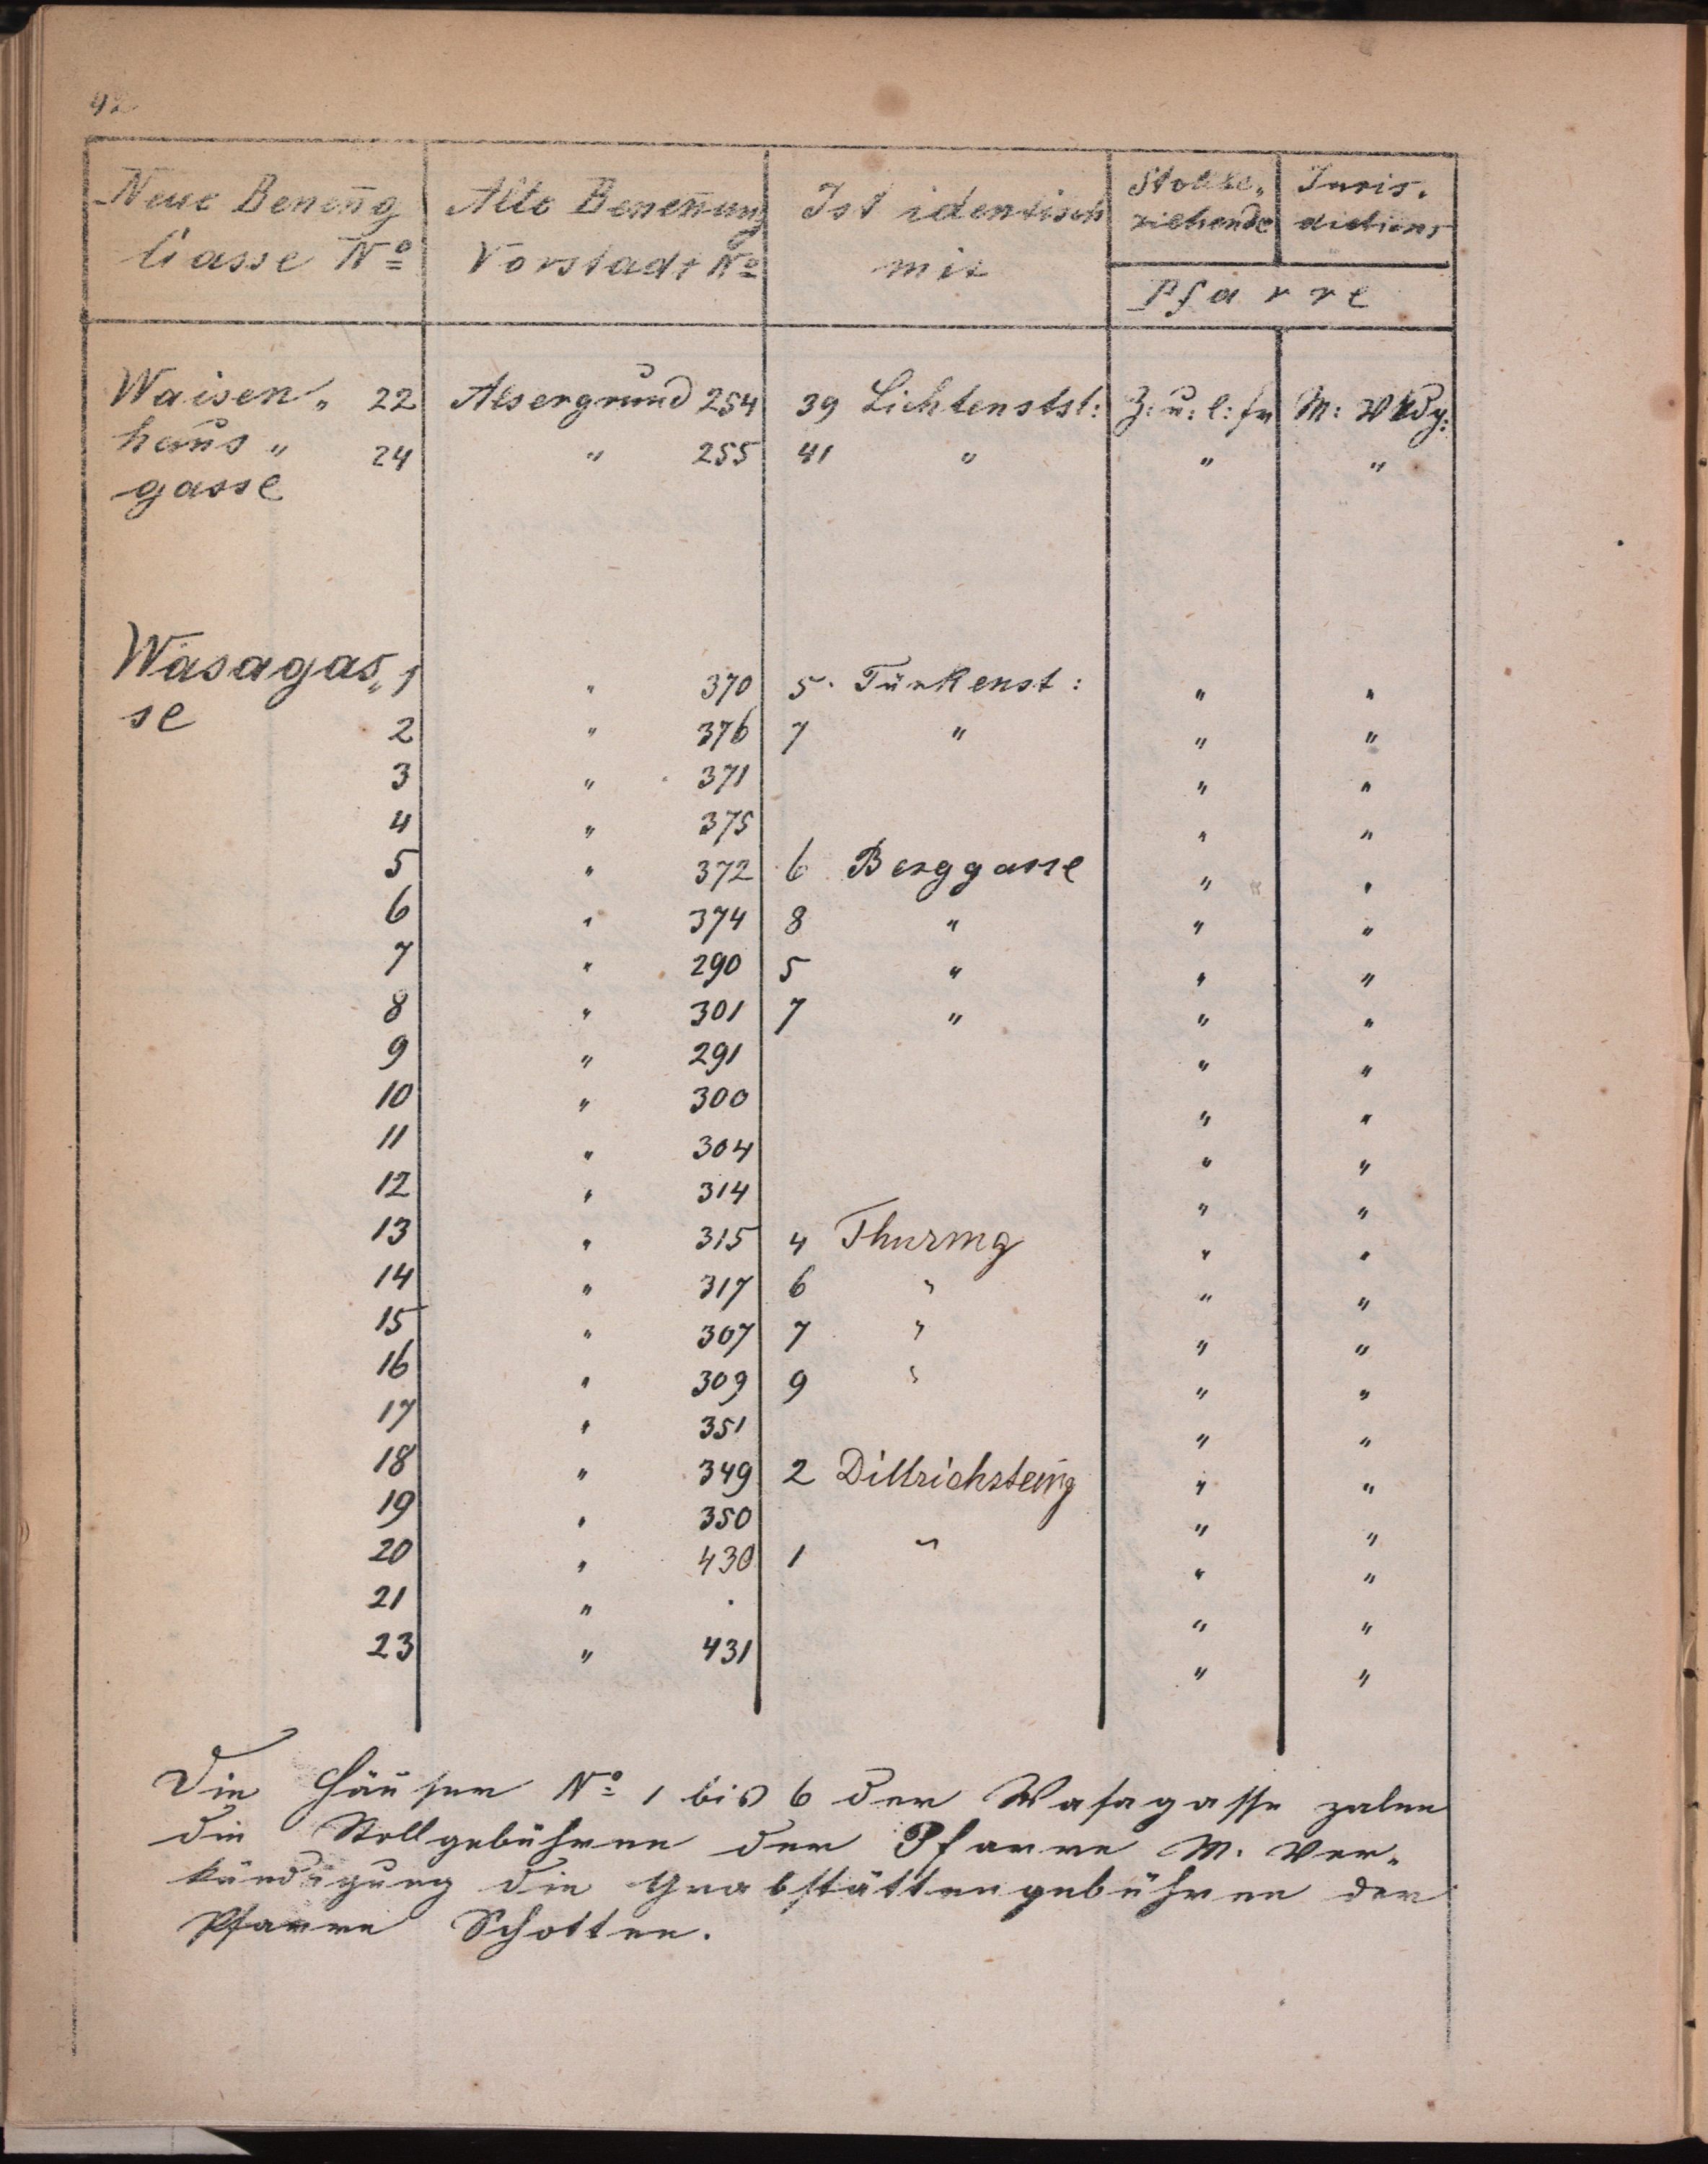 92
Neue Beneñg Alte Beneñung Ist identisch Stolbe„ Juris.
Gasse Nº Vorstadt Nº mit ziehende dictions
Pfarre
Waisen„ 22 Alsergrund 254 39 Lichtenstst: Z: u: l: fr M: Vkdg:
haus „ 24 " 255 41 " " "
gasse
Wasagas„ 1 " 370 5 Türkenst: " "
se 2 " 376 7 " " "
3 " 371 " "
4 " 375 " "
5 " 372 6 Berggasse " "
6 " 374 8 " " "
7 " 290 5 " " "
8 " 301 7 " " "
9 " 291 " "
10 " 300 " "
11 " 304 " "
12 " 314 " "
13 " 315 4 Thurmg " "
14 " 317 6 " " "
15 " 307 7 " " "
16 " 309 9 " " "
17 " 351 " "
18 " 349 2 Dittrichsteing " "
19 " 350 " "
20 " 430 1 " " "
21 " . " "
23 " 431 " "
Die Häuser Nº 1 bis 6 der Wasagasse zalen
die Stollgebühren der Pfarre M. Ver„
kündigung die Grabstättengebühren der
Pfarre Schotten.